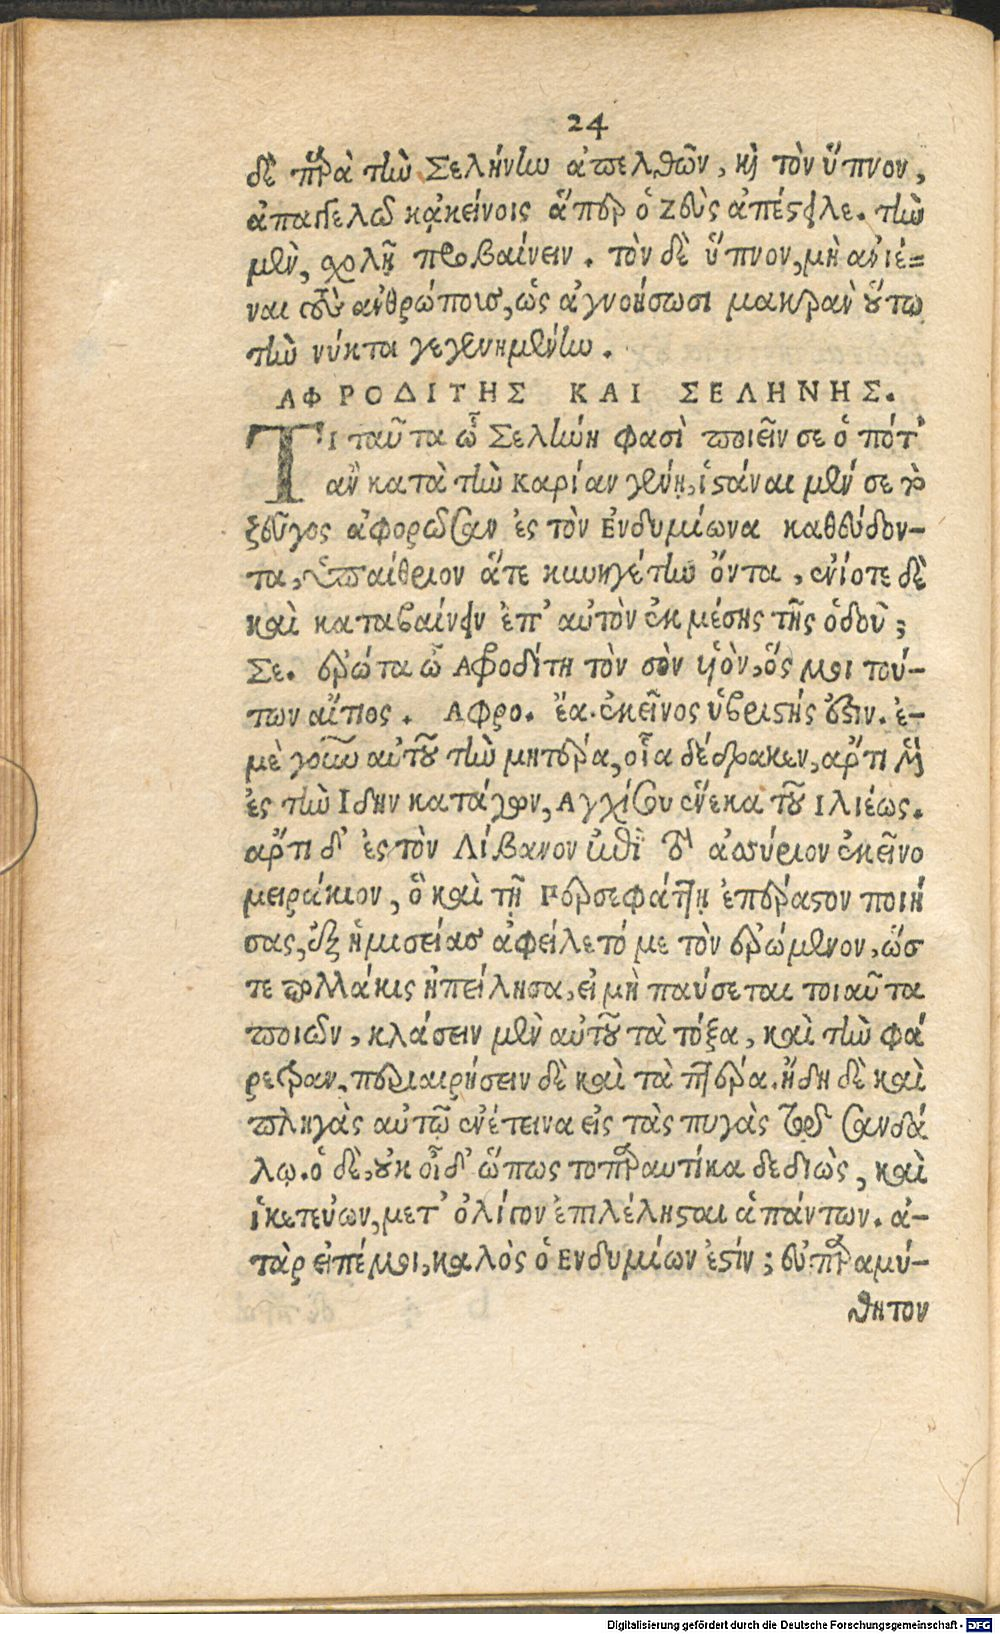 24
δὲ παρὰ τὴν Σελήνην ἀπελθὼν, καὶ τὸν ὕπνον,
ἀπαγγελῶ κἀκείνοις ἅπερ ὁ Ζεὺς ἀπέστειλε. τὴν
μὲν, σχολῇ προβαίνειν. τὸν δὲ ὕπνον, μὴ ἀνιέ=
ναι τοὺς ἀνθρώποισ, ὡς ἀγνοήσωσι μακρὰν οὕτω
τὴν νύκτα γεγενημένην.
ΑΦΡΟΔΙΤΗΣ ΚΑΙ ΣΕΛΗΝΗΣ.
Τι ταῦτα ὦ Σελήνη φασὶ ποιεῖν σε ὁπότ'
ἂν κατὰ τὴν Καρίαν γένῃ, ἱστάναι μέν σε τὸ
ζεῦγος ἀφορῶσαν ἐς τὸν Ἐνδυμίωνα καθεύδον-
τα, ὑπαίθριον ἅτε κυνηγέτην ὄντα, ἐνίοτε δὲ
καὶ καταβαίνειν ἐπ' αὐτὸν ἐκ μέσης τῆς ὁδοῦ;
Σε. ἐρώτα ὦ Αφροδίτη τὸν σὸν υἱὸν, ὅς μοι τού-
των αἴτιος. Αφρο. ἔα. ἐκεῖνος ὑβριστής ἐστιν. ἐ-
μὲ γοῦν αὐτοῦ τὴν μητέρα, οἷα δέδρακεν, ἄρτι μὲν
ἐς τὴν Ιδην κατάγων, Αγχίσου ἕνεκα τοῦ Ιλιέως.
ἄρτι δ' ἐς τὸν Λίβανον ἐπὶ τὸ ἀσσύριον ἐκεῖνο
μειράκιον, ὃ καὶ τῇ Φερσεφάττῃ ἐπέραστον ποιή
σας, ἐξ ἡμισείασ ἀφείλετό με τὸν ἐρώμενον, ὥσ
τε πολλάκις ἠπείλησα, εἰ μὴ παύσεται τοιαῦτα
ποιῶν, κλάσειν μὲν αὐτοῦ τὰ τόξα, καὶ τὴν φα
ρέτραν, περιαιρήσειν δὲ καὶ τὰ πτερά. ἤδη δὲ καὶ
πληγὰς αὐτῷ ἐνέτεινα εἰς τὰς πυγὰς τῷ σανδά
λῳ. ὁ δὲ, οὐκ οἶδ' ὅπως τοπαραυτίκα δεδιὼς, καὶ
ἱκετεύων, μετ' ὀλίγον ἐπιλέλησται ἁπάντων. ἀ-
τὰρ εἰπέ μοι, καλὸς ὁ Ενδυμίων ἐστίν; εὐπαραμύ-
θητον
Digitalisierung gefördert durch die Deutsche Forschungsgemeinschaft - DFG